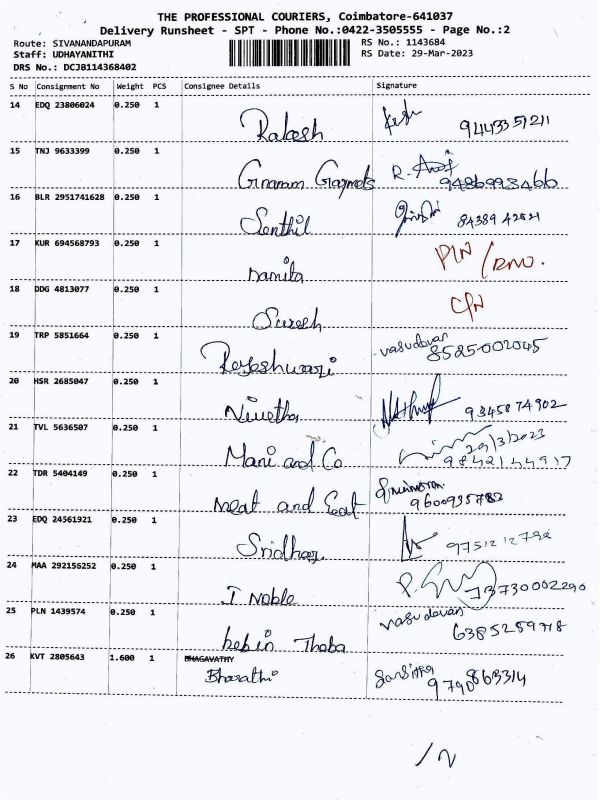 THE PROFESSIONAL COURIERS, Coimbatore-641037
Delivery Runsheet - SPT - Phone No.:0422-3505555 - Page No.:2
Route: SIVANANDAPURAM RS No.: 1143684
Staff: UDHAYANITHI RS Date: 29-Mar-2023
DRS No.: DCJB114368402
S No Consignment No Weight PCS Consignee Details Signature
14 EDQ 23806024 0.250 1 Rakesh
15 TNJ 9633399 0.250 1 9486993466
16 BLR 2951741628 0.250 1 Senthil
17 KUR 694568793 0.250 1 Namita
18 DDG 4813077 0.250 1 Suresh
19 TRP 5851664 0.250 1 vasudevan 8525002045
20 HSR 2685047 0.250 1 Nivetha 9345874902
21 TVL 5636507 0.250 1 Mani and Co 29/3/2023 9842144917
22 TDR 5404149 0.250 1 meat and Eat 9600935782
23 EDQ 24561921 0.250 1 Sridhar
24 MAA 292156252 0.250 1 I Noble 73730002290
25 PLN 1439574 0.250 1 vasudevan
26 KVT 2805643 1.600 1 BHAGAVATHY
Bharathi 9790863314